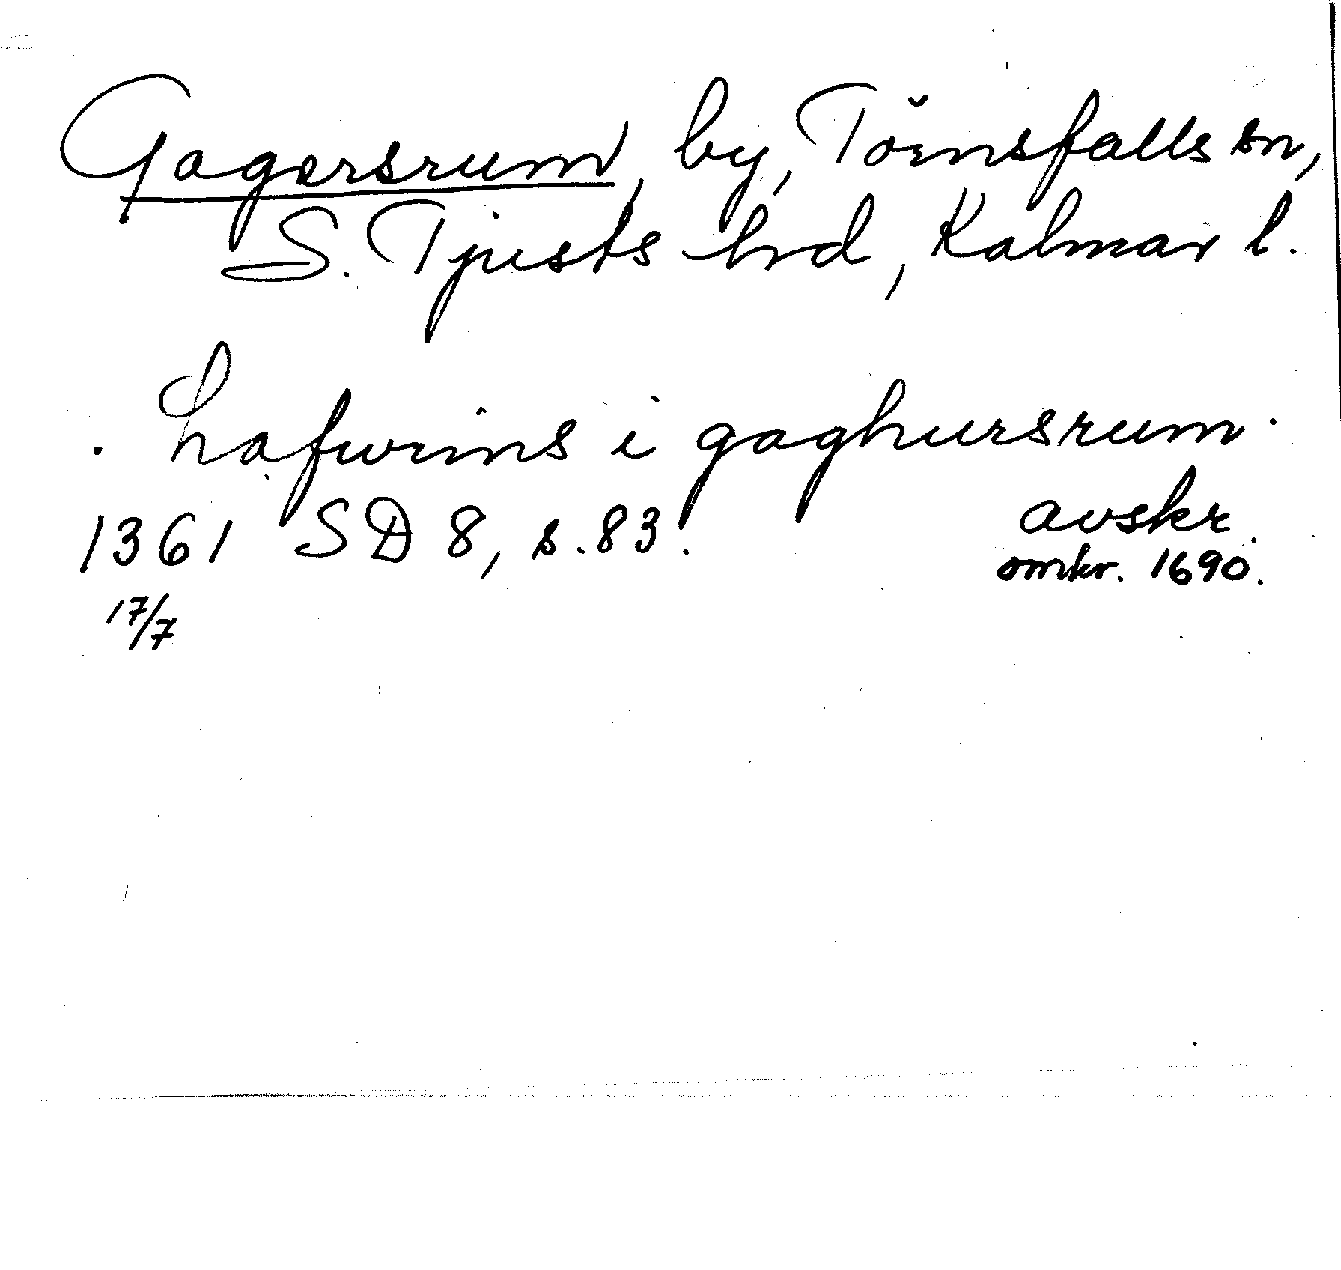 Gagersrum, by, Törnsfalls sn,
S. Tjusts hrd, Kalmar l.
. hafwrins i gaghursrum.
1361 SD 8, s. 83. avskr.
17/7 omkr. 1690.